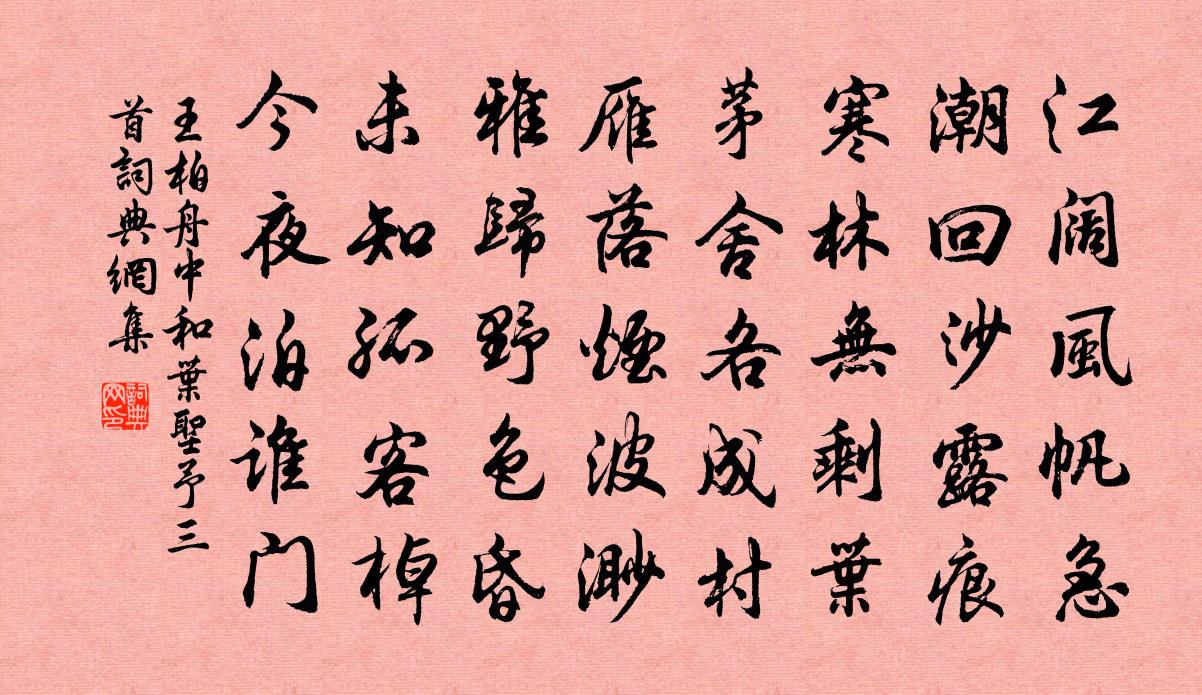 江阔風帆急
潮回沙露痕
寒林無剩葉
茅舍各成村
雁落煙波渺
雅歸野色昏
未知孤客棹
今夜泊谁门
王柏舟中和葉聖予三
首詞典網集
詞典
网印